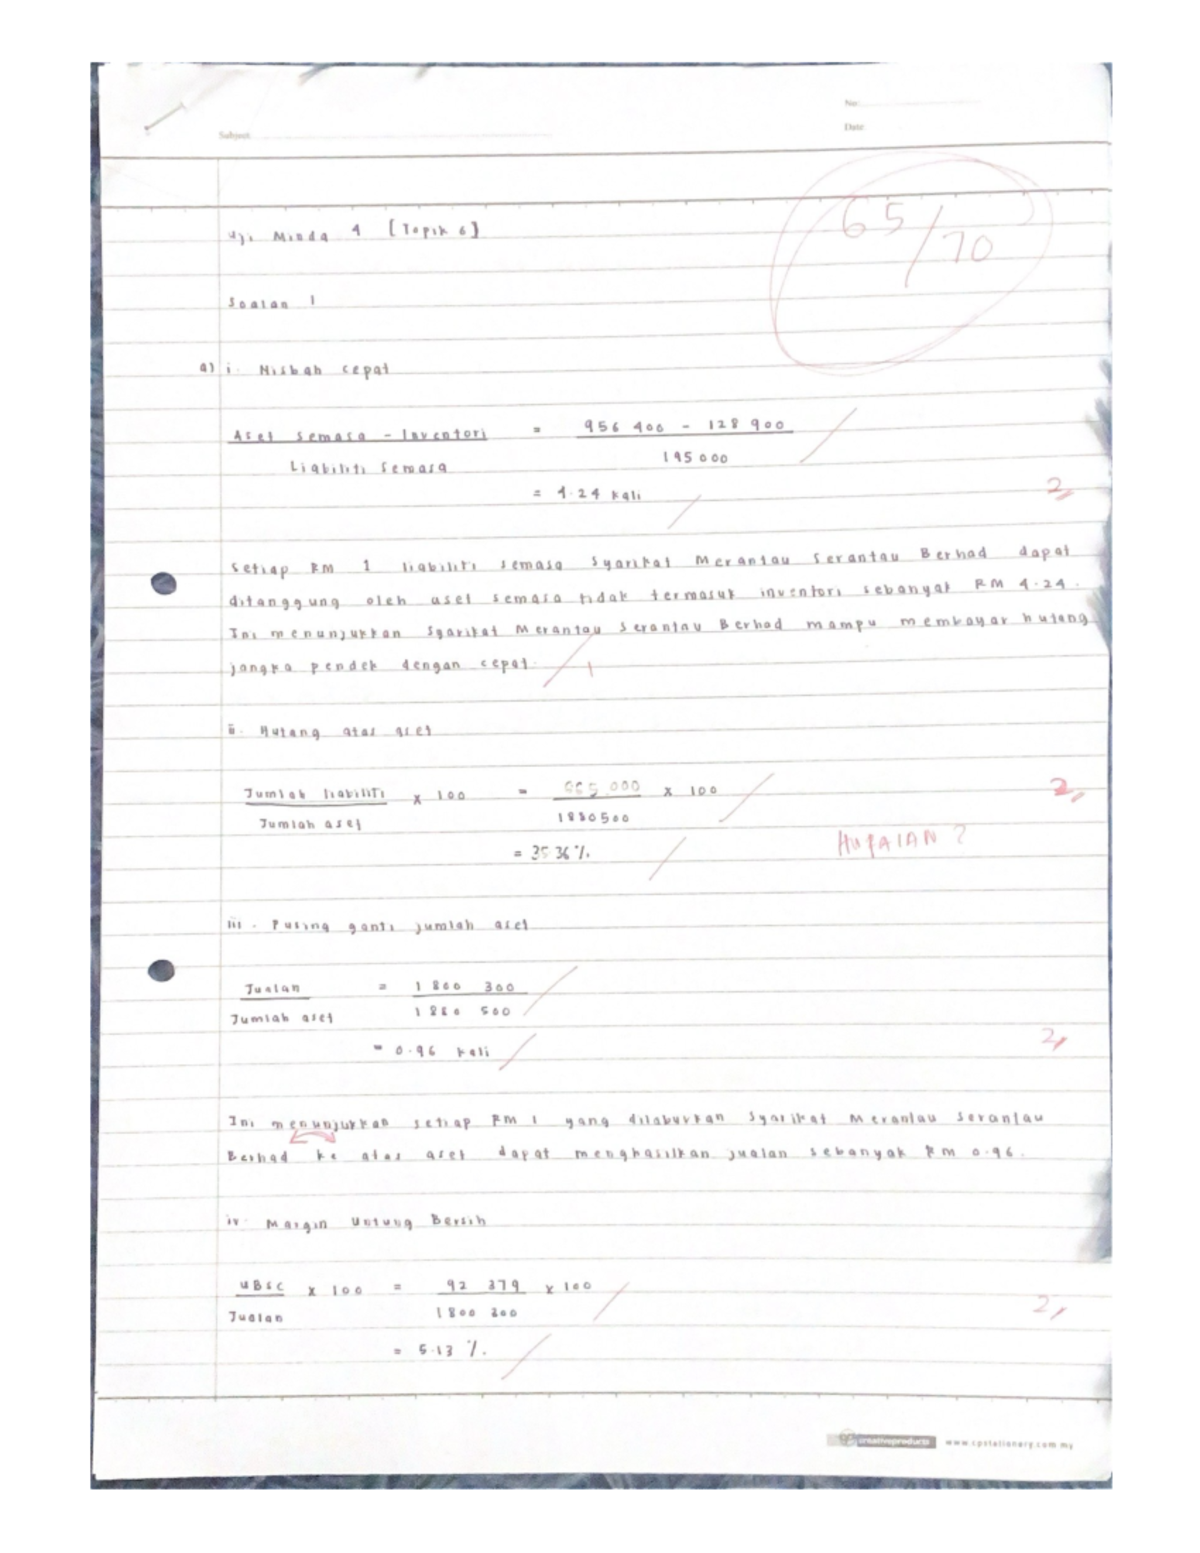 No:
Date:
Subject:
65/70
Uji Minda 4 [Topik 6]
Soalan 1
a) i. Nisbah cepat
Aset semasa - Inventori = 956 400 - 128 900
Liabiliti semasa 195 000
= 4.24 kali
2
Setiap RM 1 liabiliti semasa Syarikat Merantau Serantau Berhad dapat
ditanggung oleh aset semasa tidak termasuk inventori sebanyak RM 4.24.
Ini menunjukkan Syarikat Merantau Serantau Berhad mampu membayar hutang
jangka pendek dengan cepat. 1
ii. Hutang atas aset
Jumlah liabiliti x 100 = 665 000 x 100
Jumlah aset 1880500
2
= 35.36 %.
HURAIAN ?
iii. Pusing ganti jumlah aset
Jualan = 1 800 300
Jumlah aset 1 880 500
= 0.96 kali
2
Ini menunjukkan setiap RM 1 yang dilaburkan Syarikat Merantau Serantau
Berhad ke atas aset dapat menghasilkan jualan sebanyak RM 0.96.
iv. Margin Untung Bersih
UBSC x 100 = 92 379 x 100
Jualan 1800 300
2
= 5.13 %.
creativeproducts www.cpstationery.com.my